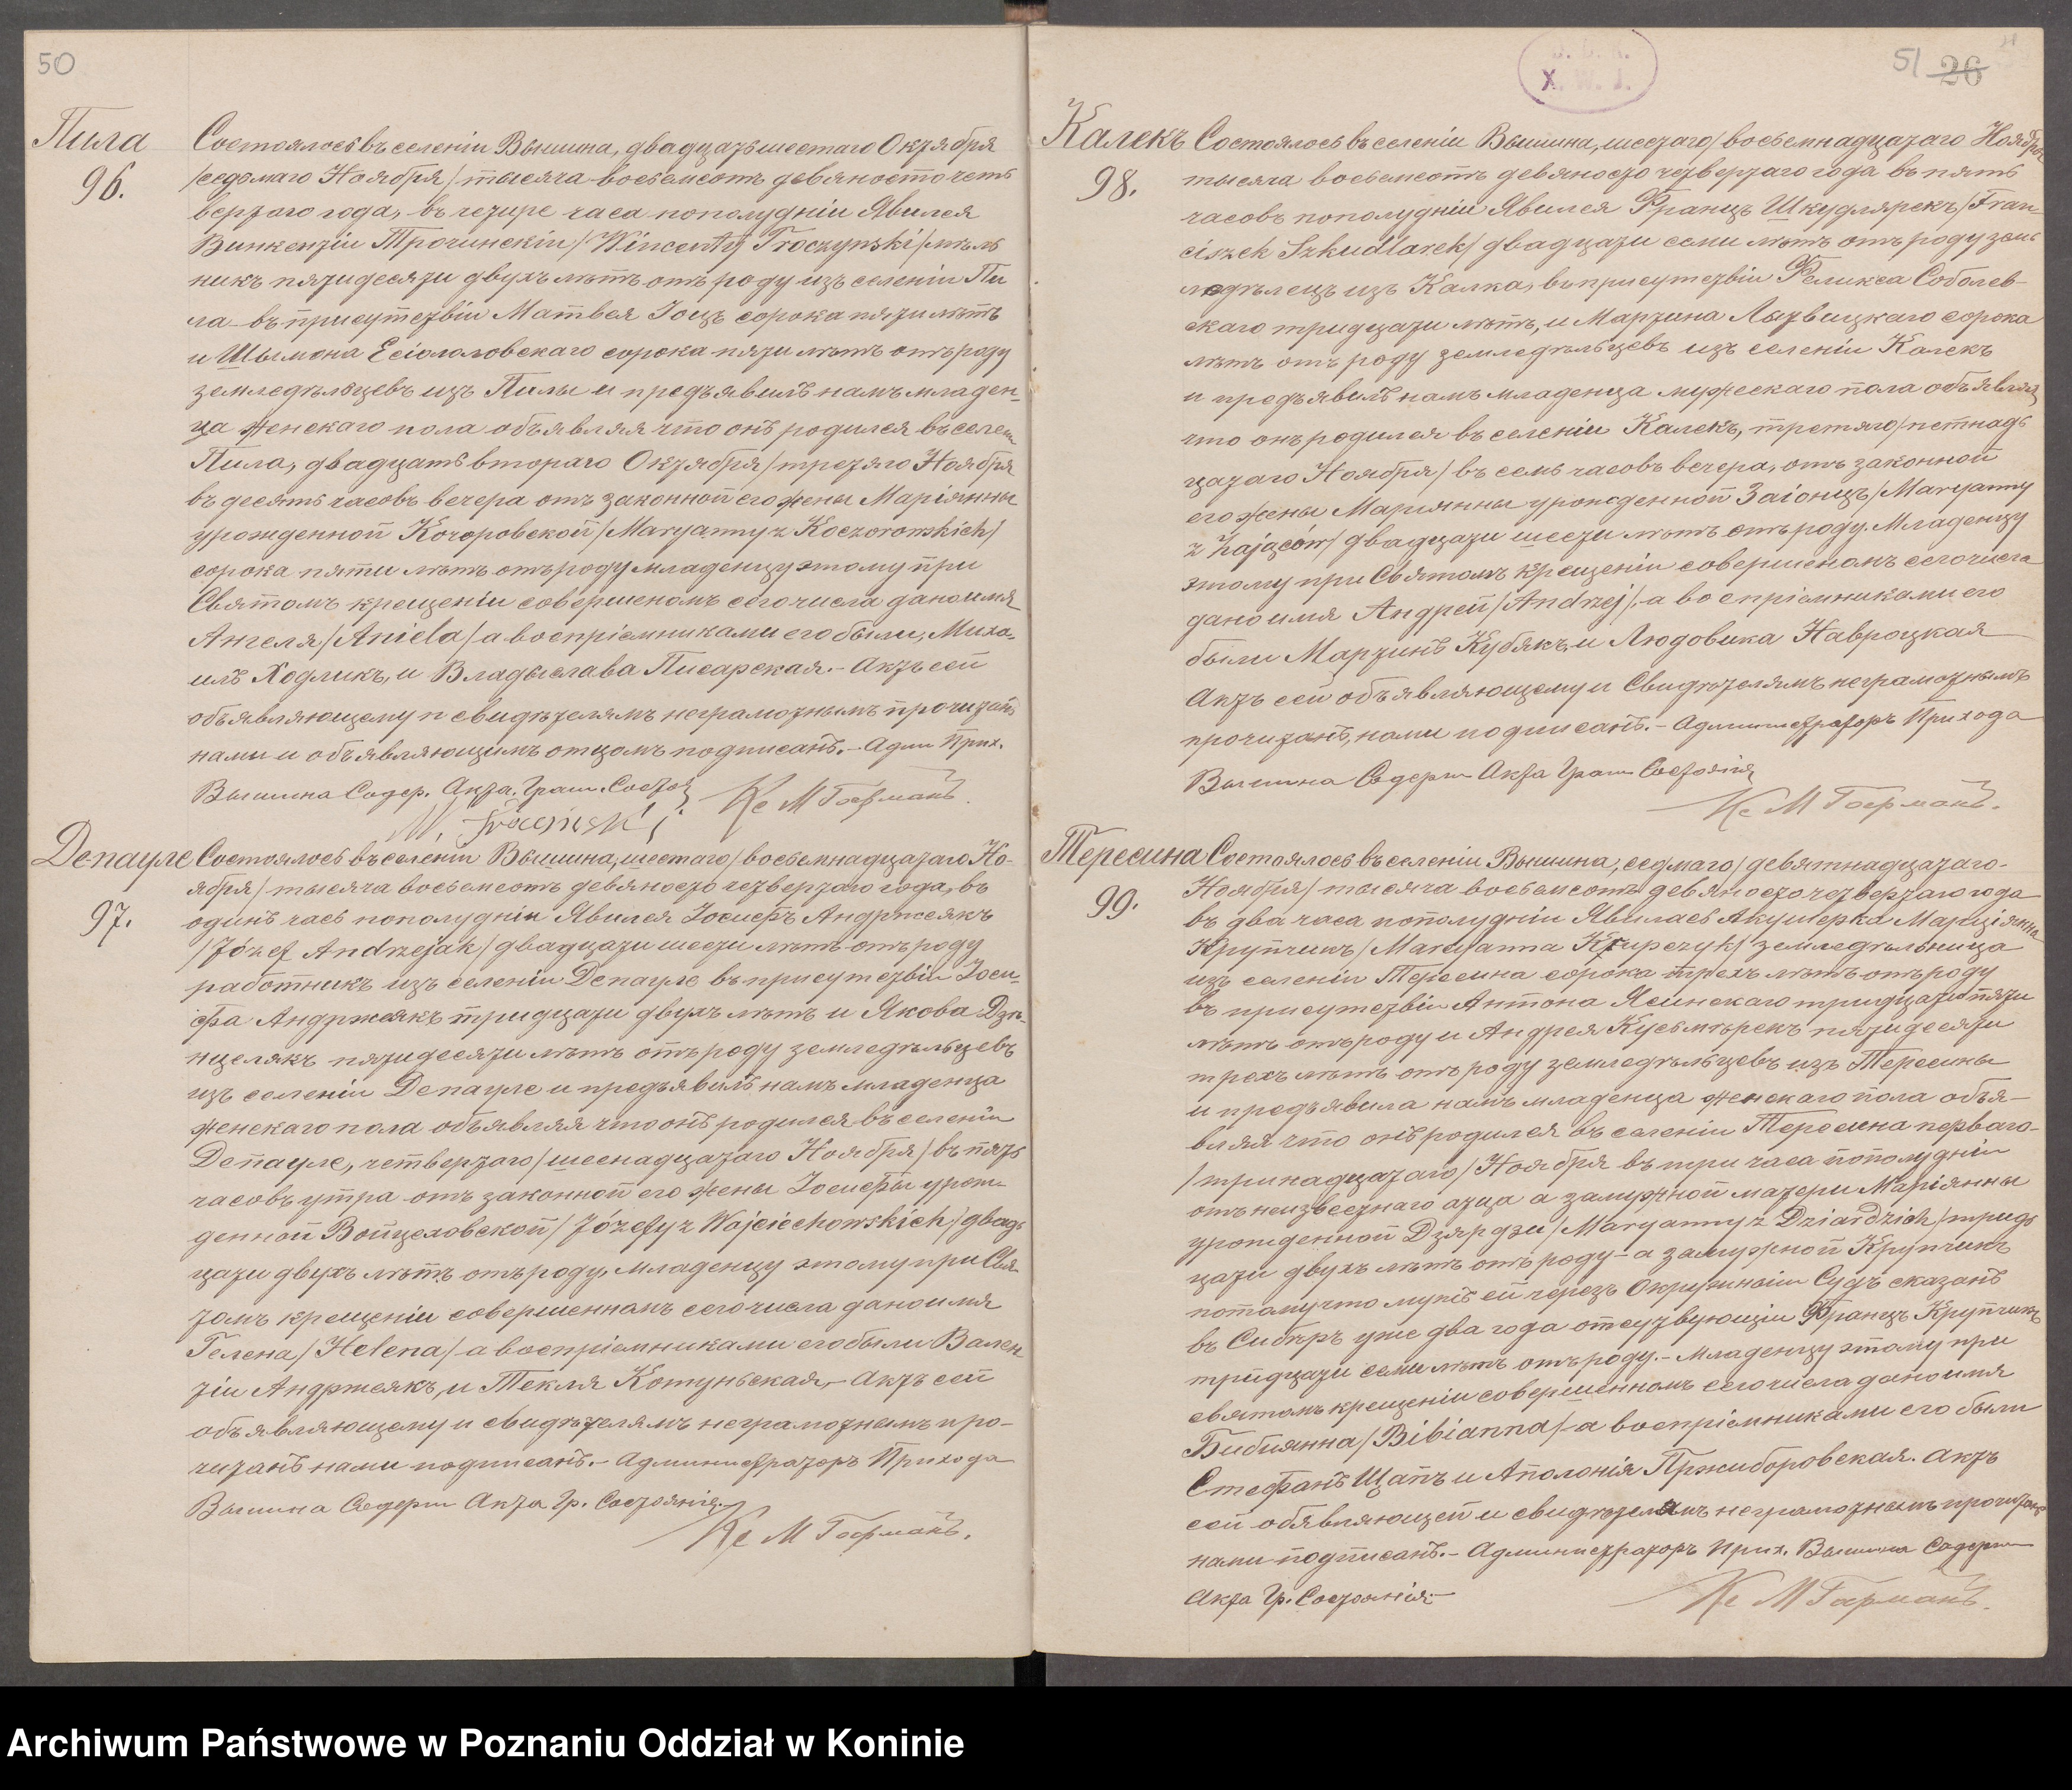 50
Пила
96.
Состоялось въ селеніи Вышина, двадцать шестаго Октября
/седьмаго Ноября/ тысяча восемьсотъ девяносто чет
вертаго года, въ четыре часа пополудніи Явился
Винкентіи Трочинскіи /Wincenty Troczynski/ мѣль
никъ пятидесяти двухъ лѣтъ отъ роду изъ селеніи Пи
ла въ присутствіи Матвея Іоцъ сорока пяти лѣтъ
и Шымона сорока пяти лѣтъ отъ роду
земледѣльцевъ изъ Пилы и предъявилъ намъ младен-
ца женскаго пола объявляя что онъ родился въ селен
Пила, двадцать втораго Октября /третяго Ноября
въ десять часовъ вечера отъ законной его жены Маріянны
урожденной Кочоровской /Maryanny z Koczorowskich/
сорока пяти лѣтъ отъ роду младенцу этому при
Святомъ крещеніи совершеномъ сего числа дано имя
Ангеля /Aniela/ а воспріемниками его были, Миха-
илъ Ходликъ, и Владыслава Писарская.- Актъ сей
объявляющему и свидѣтелямъ неграмотнымъ прочитанъ
нами и объявляющимъ отцомъ подписанъ.- Адми Прих.
Вышина Содер. Акта. Граж. Состоя
Кс М Гофманъ.
Депауле
97.
Состоялось въ селеніи Вышина, шестаго /восемнадцатаго Но-
ября/ тысяча восемьсотъ девяносто четвертаго года, въ
одинъ часъ пополудніи Явился Іосифъ Андржеякъ
/Józef Andrzejak/ двадцати шести лѣтъ отъ роду
работникъ изъ селеніи Депауле въ присутствіи Іоси-
фа Андржеякъ тридцати двухъ лѣтъ и Якова Дзѣ-
нцелякъ пятидесяти лѣтъ отъ роду земледѣльцевъ
изъ селеніи Депауле и предъявилъ намъ младенца
женскаго пола объявляя что онъ родился въ селеніи
Депауле, четвертаго /шеснадцатаго Ноября/ въ пять
часовъ утра отъ законной его жены Іосифы урож
денной Войцеховской /Józefy z Wojciechowskich/ двад
цати двухъ лѣтъ отъ роду, младенцу этому при Свя
томъ крещеніи совершенномъ сего числа дано имя
Гелена /Helena/ а воспріемниками его были Вален
тіи Андржеякъ, и Текля Котуньская,- Актъ сей
объявляющему и свидѣтелямъ неграмотнымъ про-
читанъ нами подписанъ.- Администраторъ Прихода
Вышина Содерж Акта Гр. Состоянія.
Кс М Гофманъ.
51 26
X. W. J.
Калекъ
98.
Состоялось въ селеніи Вышина, шестаго /восемнадцатаго Ноября
тысяча восемьсотъ девяносто четвертаго года въ пять
часовъ пополудніи Явился Францъ Шкудлярекъ /Fran-
ciszek Szkudlarek/ двадцати семи лѣтъ отъ роду зем
ледѣлецъ изъ Калка, въ присутствіи Феликса Соболев-
скаго тридцати лѣтъ, и Мартина Лытвицкаго сорока
лѣтъ отъ роду земледѣльцевъ изъ селеніи Калекъ
и предъявилъ намъ младенца мужескаго пола объявляя
что онъ родился въ селеніи Калекъ, третяго /петнад
цатаго Ноября/ въ семь часовъ вечера, отъ законной
его жены Марянны урожденной Заіонцъ /Maryanny
z Zająców/ двадцати шести лѣтъ отъ роду. Младенцу
этому при Святомъ крещеніи совершеномъ сего числа
дано имя Андрей /Andrzej/, а воспріемниками его
были Мартинъ Кубякъ, и Людовика Навроцкая
Актъ сей объявляющему и Свидѣтелямъ неграмотнымъ
прочитанъ, нами подписанъ.- Администраторъ Прихода
Вышина Содерж Акта Граж Состоянія
Кс М Гофманъ.
Тересина
99.
Состоялось въ селеніи Вышина, седмаго /девятнадцатаго-
Ноября/ тысяча восемьсотъ девяносто четвертаго года
въ два часа пополудніи Явилась Акушерка Марціянна
Крупчикъ /Maryanna Krupczyk/ земледѣльница
изъ селеніи Тересина сорока трехъ лѣтъ отъ роду
въ присутствіи Антона Ясинскаго тридцати пяти
лѣтъ отъ роду и Андрея Кусьмѣрекъ пятидесяти
трехъ лѣтъ отъ роду земледѣльцевъ изъ Тересины
и предъявила намъ младенца женскаго пола объя-
вляя что онъ родился въ селеніи Тересина перваго-
/тринадцатаго/ Ноября въ три часа пополудніи
отъ неизвестнаго атца а замужной матери Маріянны
урожденной Дзярдзи /Maryanny z Dziardzich/ трид
цати двухъ лѣтъ отъ роду - а замужной Крупчикъ
потому что мужъ ей черезъ Окружніи Судъ сказанъ
въ Сибѣръ уже два года отсутвующіи Францъ Крупчикъ
тридцати семи лѣтъ отъ роду.- Младенцу этому при
святомъ крещеніи совершенномъ сего числа дано имя
Бибиянна /Bibianna/ а воспріемниками его были
Стефанъ Щапъ и Аполонія Пржиборовская. Актъ
сей обявляющей и свидѣтелямъ неграмотнымъ прочитанъ
нами подписанъ.- Администраторъ Прих. Вышина Содерж
Акта Гр. Состоянія.-
Кс М Гофманъ.
Archiwum Państwowe w Poznaniu Oddział w Koninie